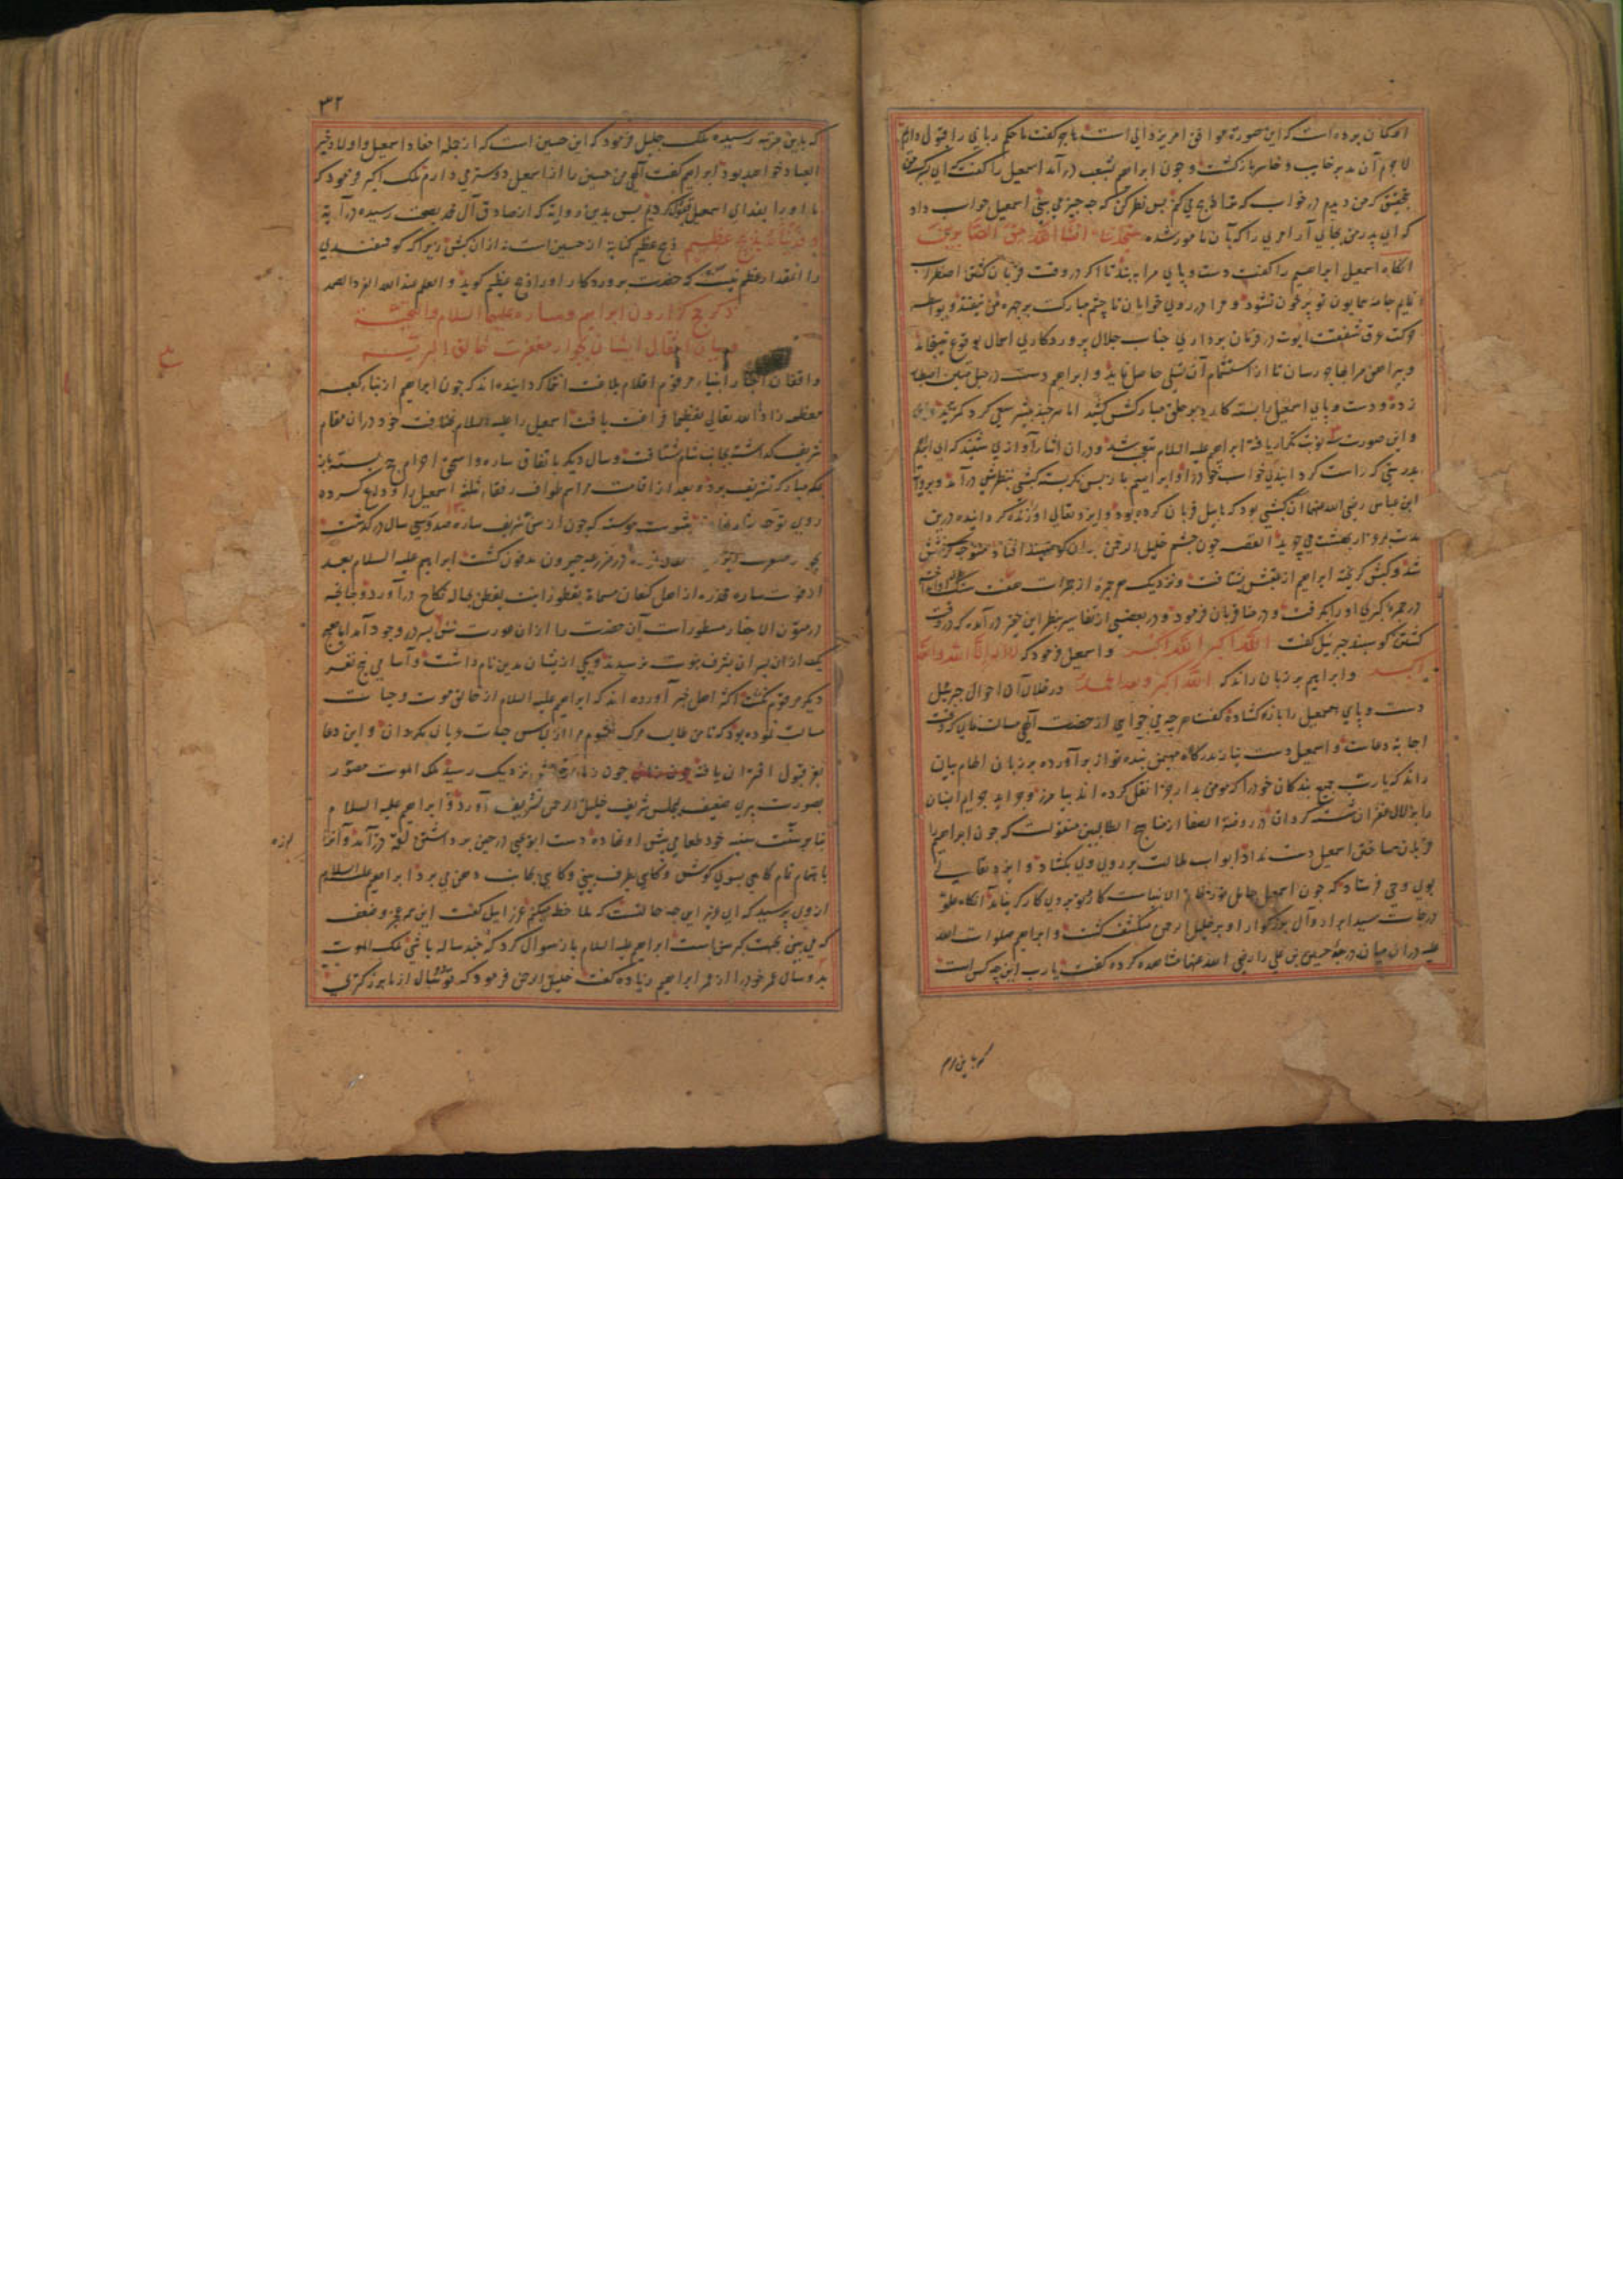 امکان برده است که این صورت موافق امر یزدانی است هاجر گفت ما حکم ربانی را قبول داریم
لاجرم آن مدبر خایب و خاسر بازگشت و چون ابراهیم بشعب درآمد اسمعیل را گفت که ای پسر من
بتحقیق که من دیدم در خواب که ترا ذبح می کنم پس نظر کن که چه چیز می بینی اسمعیل جواب داد
که ای پدر من بجای آر امری را که بآن مامور شده ستجدنی ان شاء الله من الصابرین
آنگاه اسمعیل ابراهیم را گفت دست و پای مرا به بند تا اگر در وقت قربان کشتن اضطراب
نمایم جامه همایون تو پر خون نشود و مرا در روی خوابان تا چشم مبارکت بر چهره من نیفتد و بواسطه
حرکت عرق شفقت ابوت در فرمان برداری جناب جلال پروردگاری اهمال بوقوع نینجامد
و پیراهن مرا بهاجر رسان تا از استشمام آن تسلی حاصل نماید و ابراهیم دست در حبل متین اصطبار
زده و دست و پای اسمعیل را بسته کارد بر حلق مبارکش کشید اما هر چند بیشتر سعی کرد کمتر برید
و این صورت سه نوبت تکرار یافته ابراهیم علیه السلام متعجب شد و در آن اثنا آوازی شنید که ای ابراهیم
بدرستی که راست گردانیدی خواب خود را و ابراهیم باز پس نگریسته کبشی بنظرش درآمد و بروایت
ابن عباس رضی الله عنهما آن کبشی بود که هابیل قربان کرده بود و ایزد تعالی او را زنده گردانیده درین
مدت در مرغزار بهشت می چرید القصه چون چشم خلیل الرحمن بر آن گوسپند افتاد متوجه گرفتنش
شد و کبش گریخته ابراهیم از عقبش بشتافت و نزدیک هر جمره از جمرات هفت سنگ انداخت
در جمره کبری او را بگرفت و در منا قربان فرمود و در بعضی از تفاسیر بنظر این حقیر درآمده که در وقت
کشتن گوسپند جبرئیل گفت الله اکبر الله اکبر و اسمعیل فرمود که لا اله الا الله والله
اکبر و ابراهیم بر زبان راند که الله اکبر ولله الحمد در خلال آن احوال جبرئیل
دست و پای اسمعیل را باز گشاده گفت هر چه می خواهی از حضرت الهی مسالت نمای که وقت
اجابة دعاست و اسمعیل دست نیاز بدرگاه مهیمن بنده نواز برآورده بر زبان الهام بیان
راند که یا رب جمیع بندگان خود را که مومن بدار جزا نقل کرده اند بیامرز و جراید جرایم ایشان
را بزلال غفران شسته گردان در روضة الصفا از مناهج الطالبین منقولست که چون ابراهیم را
قربان ساختن اسمعیل دست نداد ابواب ملالت بر روی وی بگشاد و ایزد تعالی
بوی وحی فرستاد که چون اسمعیل حامل نور خاتم الانبیاست کارد تو بروی کارگر نیاید آنگاه علو
درجات سید ابرار و آل بزرگوار او بر خلیل الرحمن منکشف گشت و ابراهیم صلوات الله
علیه در آن میان درجه حسین بن علی را رضی الله عنهما مشاهده کرده گفت یا رب این چه کس است
که باین مرتبه
۳۲
که باین مرتبه رسیده ملک جلیل فرمود که این حسین است که از جمله احفاد اسمعیل و اولاد خیر
العباد خواهد بود ابراهیم گفت الهی من حسین را از اسمعیل دوستر می دارم ملک اکبر فرمود که
ما او را بفدای اسمعیل قبول کردیم پس بدین روایة که از صادق آل محمد بصحت رسیده در آیة
و فدیناه بذبح عظیم ذبح عظیم کنایة از حسین است نه از آن کبش زیرا که گوسفندی
را آنقدار عظم نیست که حضرت پروردگار او را ذبح عظیم گوید والعلم عند الله الفرد الصمد
ذکر حج گزاردن ابراهیم و ساره علیهما السلام والتحیة
و بیان انتقال ایشان بجوار مغفرت خالق البریه
واقفان اخبار انبیا مرقوم اقلام بلاغت انتما گردانیده اند که چون ابراهیم از بناء کعبه
معظمه زادها الله تعالی تعظیما فراغت یافت اسمعیل را علیه السلام بخلافت خود در آن مقام
شریف گذاشته بجانب شام شتافت و سال دیگر باتفاق ساره و اسحق احرام حج بسته باز
بمکه مبارکه تشریف برد و بعد از اقامت مراسم طواف رفقاء ثلثه اسمعیل را وداع کرده
روی توجه بشام نهادند بثبوت پیوسته که چون از سن شریف ساره صد و سی سال درگذشت
در مزرعه حبرون مدفون گشت ابراهیم علیه السلام بعد
از فوت ساره مخدره از اهل کنعان مسماة بقطورا بنت یقطن بحباله نکاح درآورد و چنانچه
در متون الاخبار مسطور است آن حضرت را از آن عورت شش پسر در وجود آمد اما هیچ
یک از آن پسران بشرف نبوت نرسید و یکی از ایشان مدین نام داشت و اسامی پنج نفر
دیگر مرقوم نگشت اکثر اهل خبر آورده اند که ابراهیم علیه السلام از خالق موت و حیات
مسالت نموده بود که تا من طالب مرگ نشوم مرا از لباس حیات عریان مگردان و این دعا
بعز قبول اقتران یافته چون زمان رحلتش نزدیک رسید ملک الموت مصور
بصورت پیری ضعیف بمجلس شریف خلیل الرحمن تشریف آورد و ابراهیم علیه السلام
بنا بر سنت سنیه خود طعامی پیش او نهاده دست ابو یحیی در حین برداشتن لقمه در آمد و آنرا
لرزه
باهتمام تمام گاهی بسوی گوش و گاهی بطرف بینی و گاهی بجانب دهن می برد ابراهیم علیه السلام
از وی پرسید که ای پیر این چه حالتست که ملاحظه میکنم عزرائیل گفت این عجز و ضعف
که می بینی بجهت کبر سن است ابراهیم علیه السلام باز سوال کرد که چند ساله باشی ملک الموت
بدو سال عمر خود را از عمر ابراهیم زیاده گفت خلیل الرحمن فرمود که تو بدو سال از ما بزرگتری